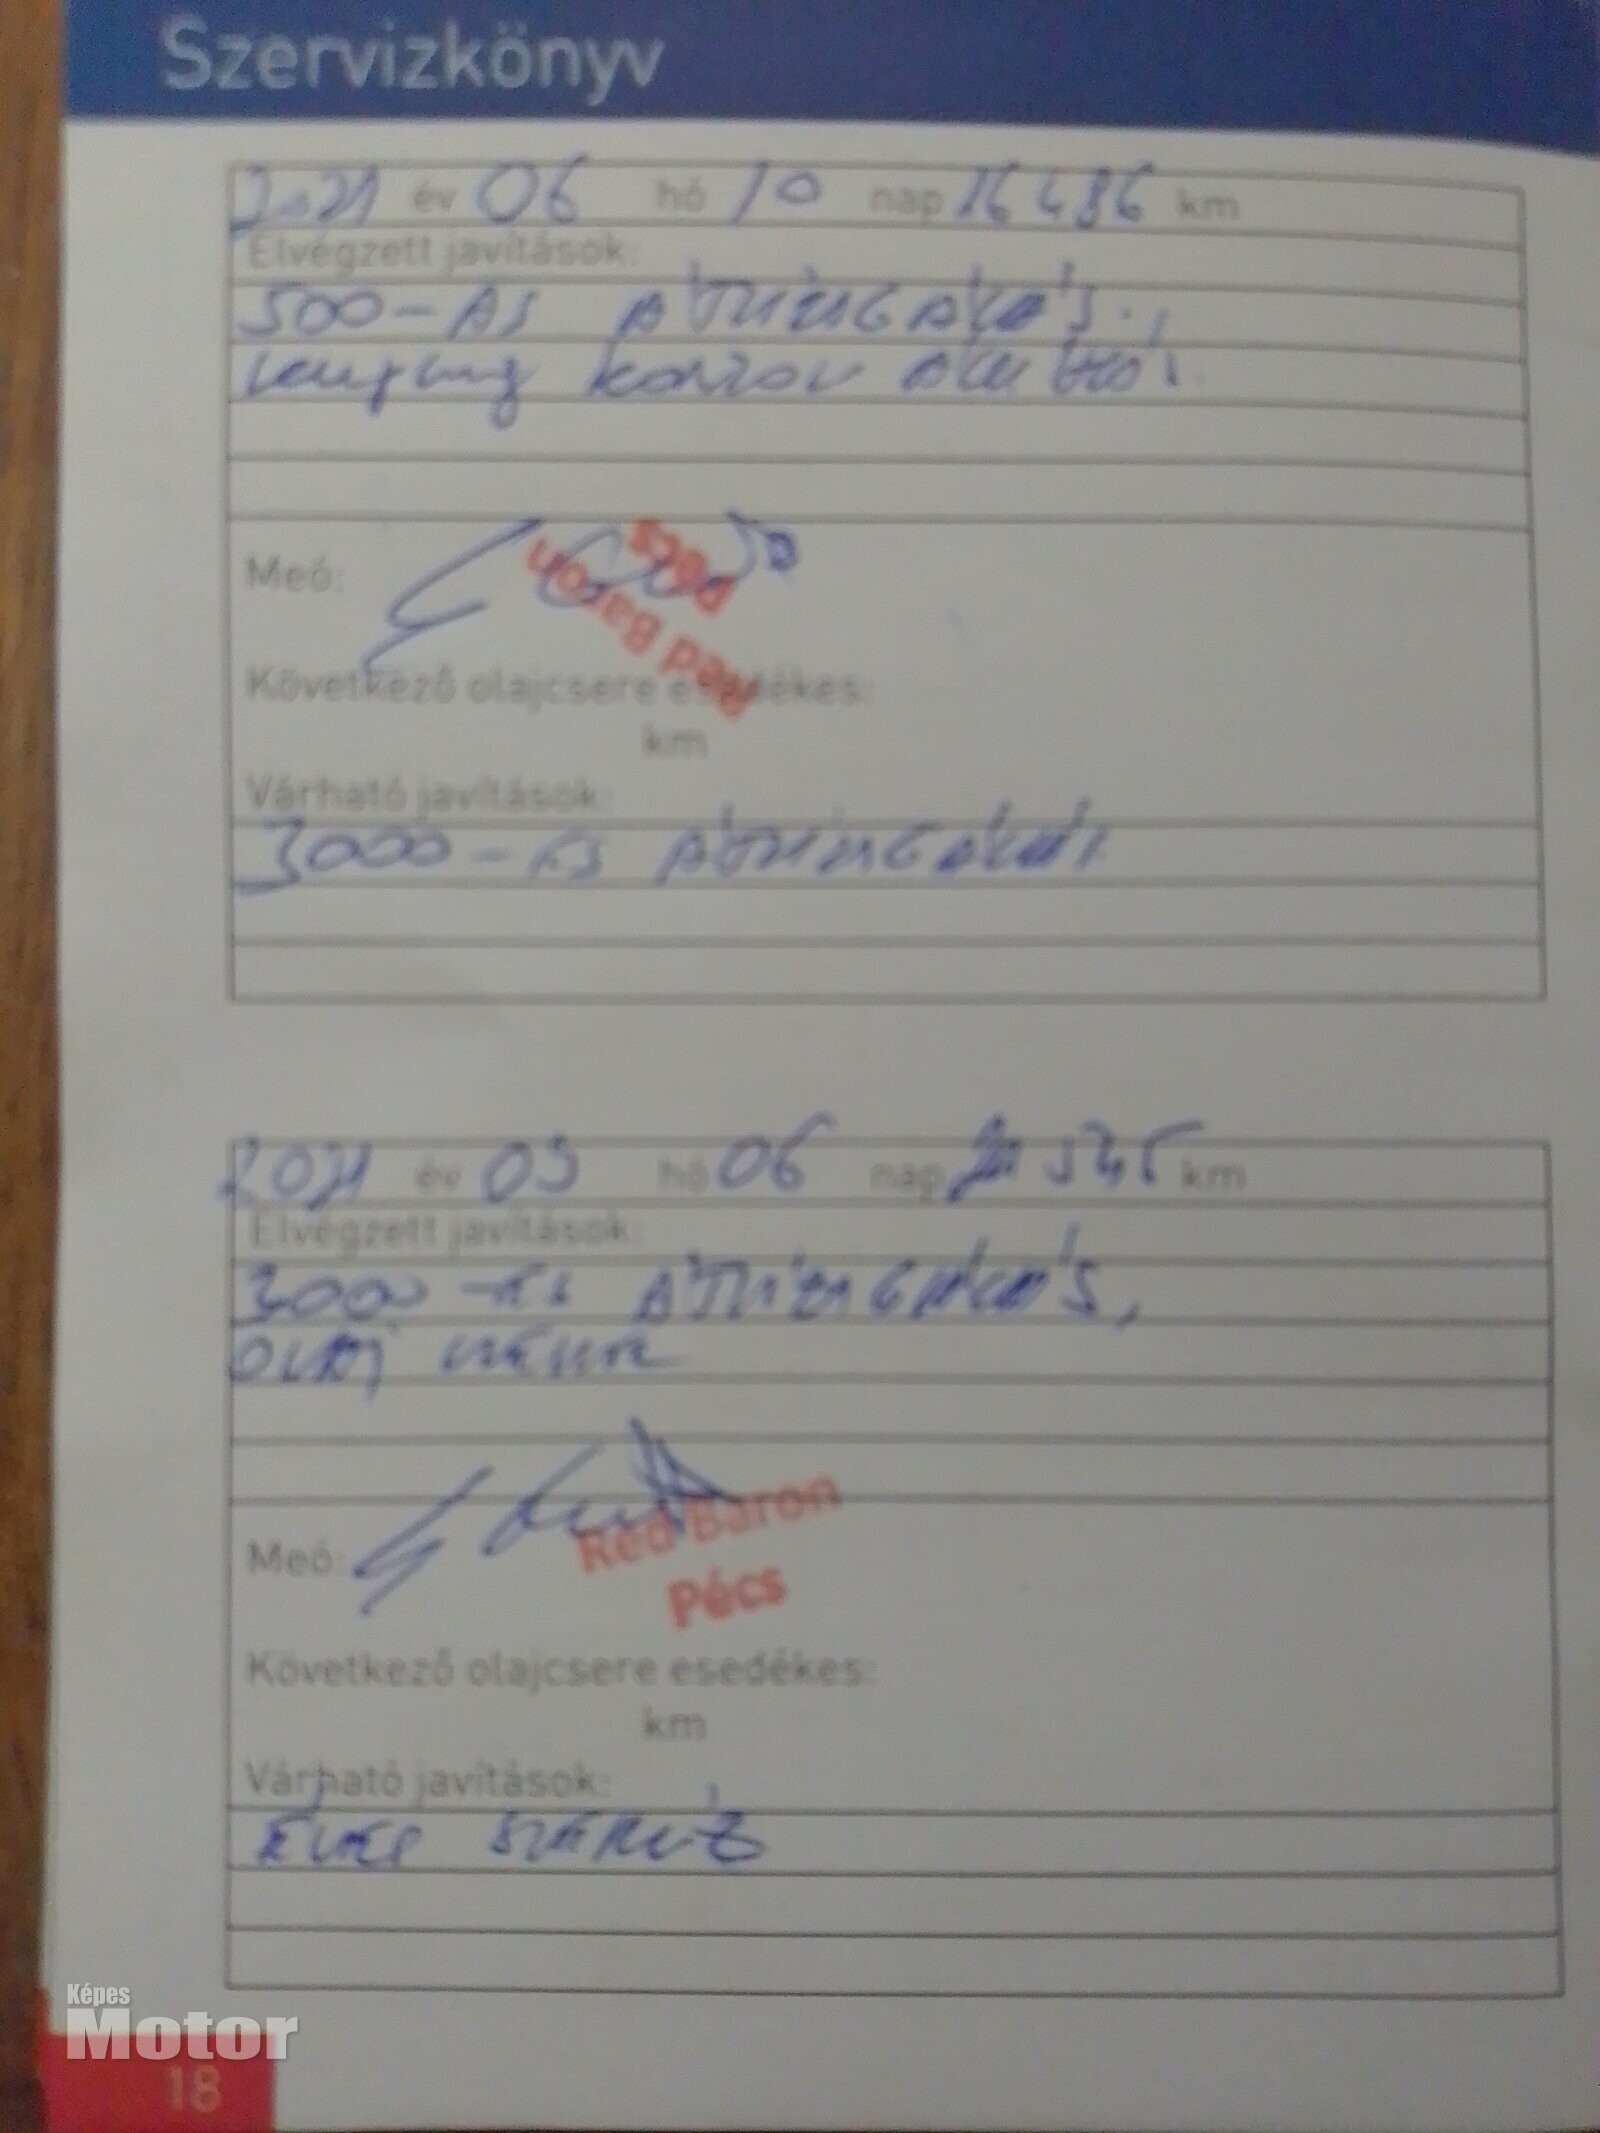 Szervizkönyv
2021 év 06 hó 10 nap 16486 km
Elvégzett javítások:
500-AS ÁTVIZSGÁLÁS.,
konzol
Meó:
Red Baron
Pécs
Következő olajcsere esedékes:
km
Várható javítások:
3000-ES ÁTVIZSGÁLÁS
2021 év 09 hó 06 nap km
Elvégzett javítások:
3000-ES ÁTVIZSGÁLÁS,
OLAJ CSERE
Meó:
Red Baron
Pécs
Következő olajcsere esedékes:
km
Várható javítások:
ÉVES SZERVÍZ
Képes
Motor
18